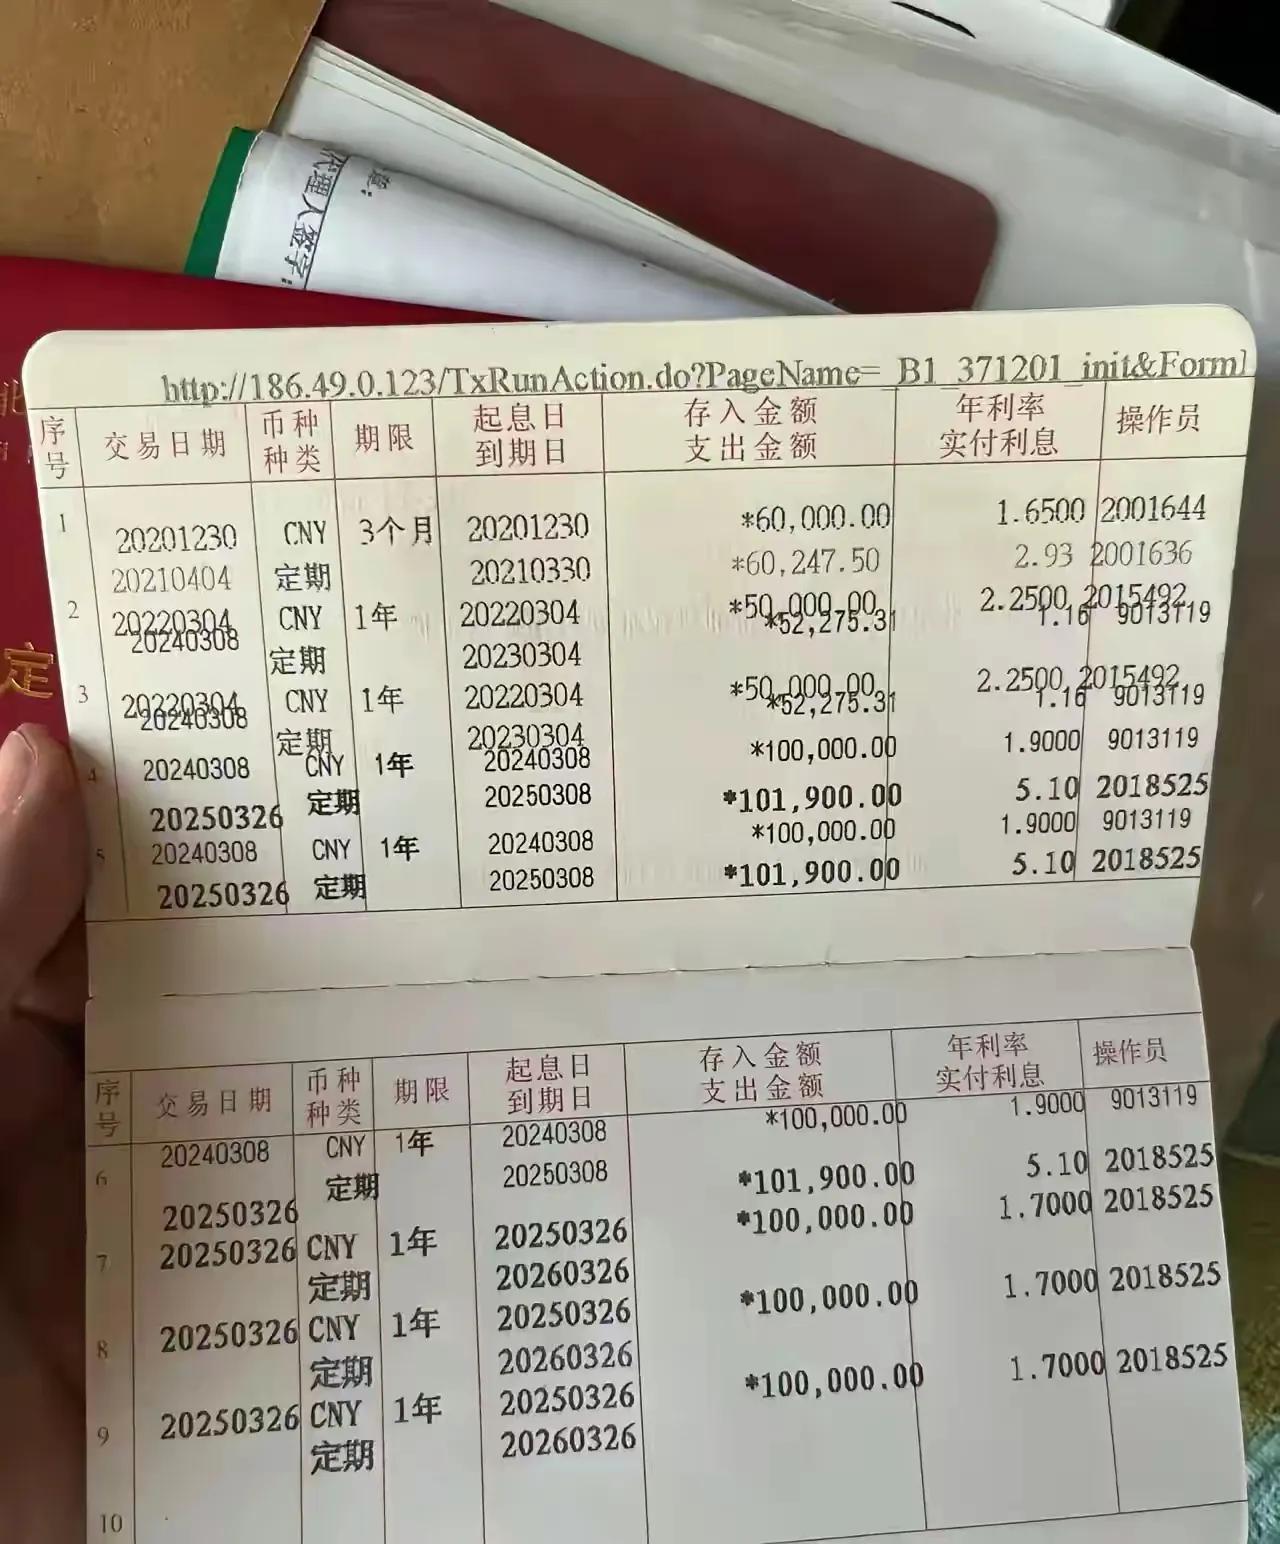 代理人签字:
定
http://186.49.0.123/TxRunAction.do?PageName=_B1_371201_init&Form
序号 交易日期 币种种类 期限 起息日到期日 存入金额支出金额 年利率实付利息 操作员
1 20201230 CNY 3个月 20201230 *60,000.00 1.6500 2001644
20210404 定期 20210330 *60,247.50 2.93 2001636
2 20220304 CNY 1年 20220304 *50,000.00 2.2500 2015492
20240308 *52,275.31 1.16 9013119
定期 20230304
3 20220304 CNY 1年 20220304 *50,000.00 2.2500 2015492
20240308 *52,275.31 1.16 9013119
定期 20230304
4 20240308 CNY 1年 20240308 *100,000.00 1.9000 9013119
20250326 定期 20250308 *101,900.00 5.10 2018525
5 20240308 CNY 1年 20240308 *100,000.00 1.9000 9013119
20250326 定期 20250308 *101,900.00 5.10 2018525
序号 交易日期 币种种类 期限 起息日到期日 存入金额支出金额 年利率实付利息 操作员
6 20240308 CNY 1年 20240308 *100,000.00 1.9000 9013119
20250326 定期 20250308 *101,900.00 5.10 2018525
7 20250326 CNY 1年 20250326 *100,000.00 1.7000 2018525
定期 20260326
8 20250326 CNY 1年 20250326 *100,000.00 1.7000 2018525
定期 20260326
9 20250326 CNY 1年 20250326 *100,000.00 1.7000 2018525
定期 20260326
10